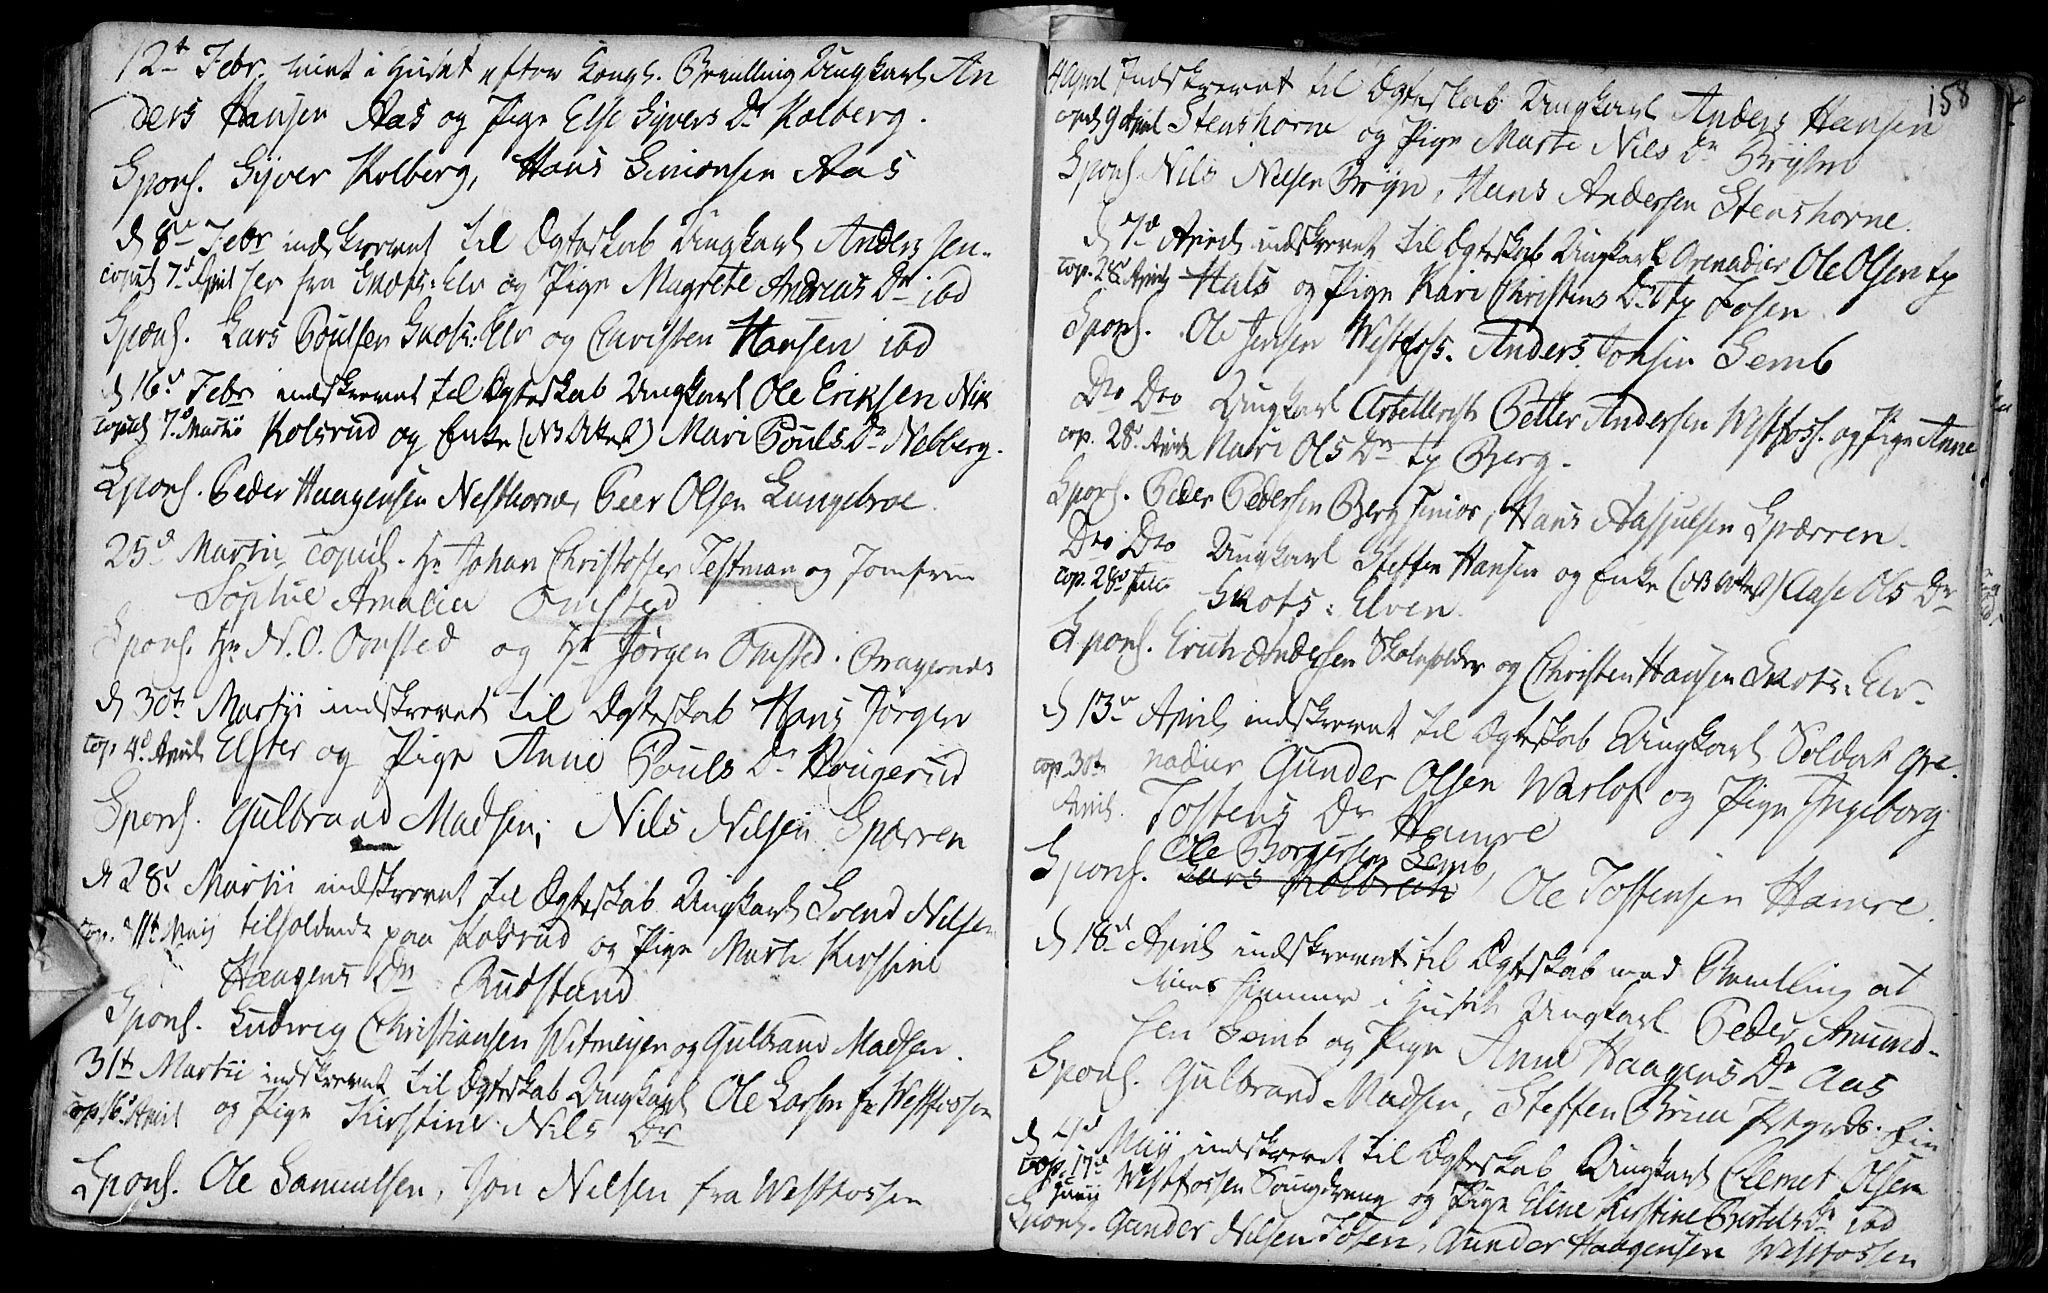 12t Febr. viet i Huset efter Kongl. Bevilling Ungkarl An
ders Hansen Aas og Pige Else Syvers Dr Kolberg.
Spons. Syver Kolberg, Hans Simonsen Aas
d 8de Febr indskrevet til Ægteskab Ungkarl Anders Jen-
copul. 7d April ser fra Skots: Elv og Pige Magrete Andreas Dr ibd
Spons. Lars Poulsen Skots: Elv og Christen Hansen ibd
d 16d Febr indskrevet til Ægteskab Ungkarl Ole Eriksen Nik
copul. 7d Martii Kolsrud og Enke (NB) Mari Pouls Dr Nebberg.
Spons. Peder Haagensen Nesthorne, Peer Olsen Langebroe.
25d Martii copul. Hr Johan Christoffer Testman og Jomfrue
Sophie Amalia Omsted
Spons. Hr N. O. Omsted og Hr Jørgen Omsted. Bragernæs
d 30te Martii indskrevet til Ægteskab Hans Jørgen
cop. 4d April Elster og Pige Anne Pouls Dr Hougerud
Spons. Gulbrand Madsen, Nils Nilsen Sparren
d 28d Martii indskrevet til Ægteskab Ungkarl Svend Nilsen
cop. d 11t Maij tilholdende paa Kolsrud og Pige Marte Kirstine
Haagens Dr Rudstand
Spons. Ludvig Christiansen Witmeyer og Gulbrand Madsen.
31te Martii indskrevet til Ægteskab Ungkarl Ole Larsen fr Westfossen
cop. 16d April og Pige Kirstine Nils Dr
Spons. Ole Samuelsen, Jon Nilsen fra Westfossen
158
4 April Indskrevet til Ægteskab Ungkarl Anders Hansen
copul. 9 April Stenshorne og Pige Marte Nils Dr
Spons. Nils Nilsen Bryn, Hans Andersen Stenshorne.
d 7d April indskrevet til Ægteskab Ungkarl Grenadier Ole Olsen
cop. 28d April Hals og Pige Kari Christens Dr Fosen
Spons. Ole Jensen Westfoss. Anders Jonsen Semb
Dto Dto Ungkarl Petter Andersen Westfoss. og Pige Anne
cop. 28d April Mari Ols Dr Berg.
Spons. Peder Pedersen Berg Junior, Hans Aasjulsen Sparren.
Dto Dto Ungkarl Steffen Hansen og Enke (NB) Aase Ols Dr
cop. 28d Julii Skots: Elven.
Spons. Erich Andersen Skoleholder og Christen Hansen Skots: Elv.
d 13de April indskrevet til Ægteskab Ungkarl Soldat Gre-
cop. 30te nadier Gunder Olsen Warlof og Pige Ingeborg
April. Tostens Dr Hamre
Ole Borgersen Semb,
Spons. Lars Kolbrek Ole Tostensen Hamre.
d 18d April indskrevet til Ægteskab med Bevilling at
vies hiemme i Huset Ungkarl Peder Amund-
sen Semb og Pige Anne Haagens Dr Aas
Spons. Gulbrand Madsen, Steffen Bruu
d 4d Maij indskrevet til Ægteskab Ungkarl Clemet Olsen
cop. 17d Westfossen Saugdreng og Pige Eline Kirstine Bertels Dr ibd
Junii
Spons. Gunder Nilsen Fosen, Gunder Haagensen Westfossen